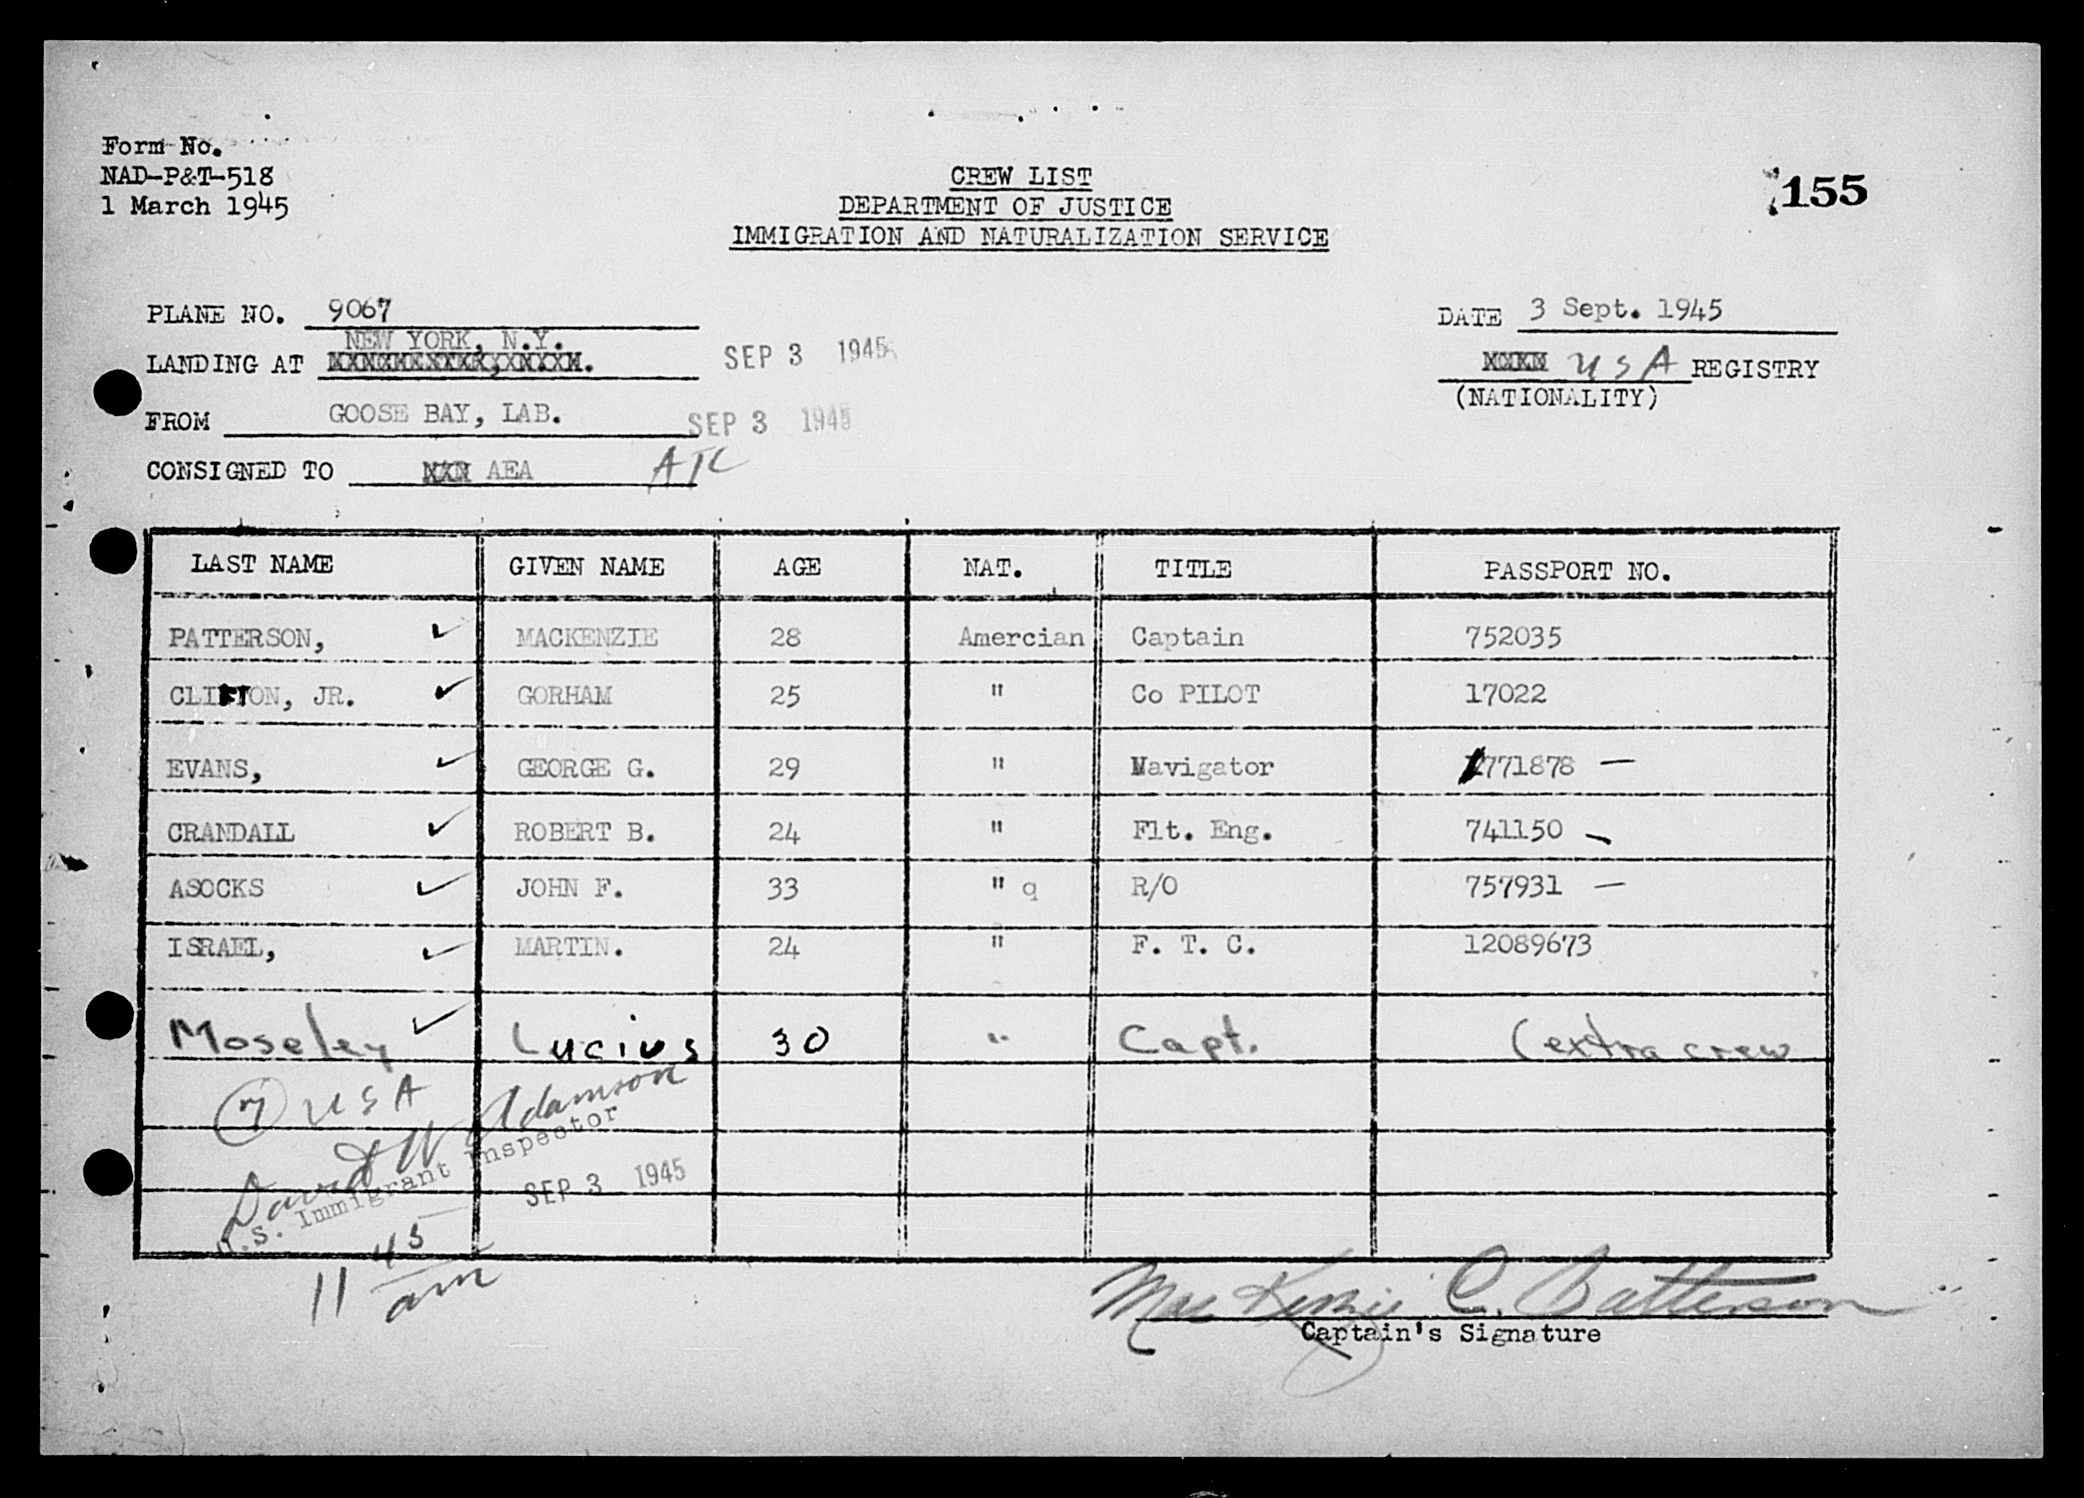 Form No.
NAD-P&T-518
1 March 1945
CREW LIST
DEPARTMENT OF JUSTICE
IMMIGRATION AND NATURALIZATION SERVICE
155
PLANE NO. 9067
DATE 3 Sept. 1945
NEW YORK, N.Y.
LANDING AT
SEP 3 1945
USA REGISTRY
(NATIONALITY)
FROM GOOSE BAY, LAB.
SEP 3 1945
CONSIGNED TO AEA ATC
LAST NAME GIVEN NAME AGE NAT. TITLE PASSPORT NO.
PATTERSON, ✓ MACKENZIE 28 Amercian Captain 752035
CLIFTON, JR. ✓ GORHAM 25 " Co PILOT 17022
EVANS, ✓ GEORGE G. 29 " Navigator 771878 —
CRANDALL ✓ ROBERT B. 24 " Flt. Eng. 741150 —
ASOCKS ✓ JOHN F. 33 " q R/O 757931 —
ISRAEL, ✓ MARTIN. 24 " F. T. C. 12089673
Moseley ✓ Lucius 30 " Capt. (extra crew
7 USA
David W Adamson
U.S. Immigrant Inspector
SEP 3 1945
11 45 am
MacKenzie C. Patterson
Captain's Signature